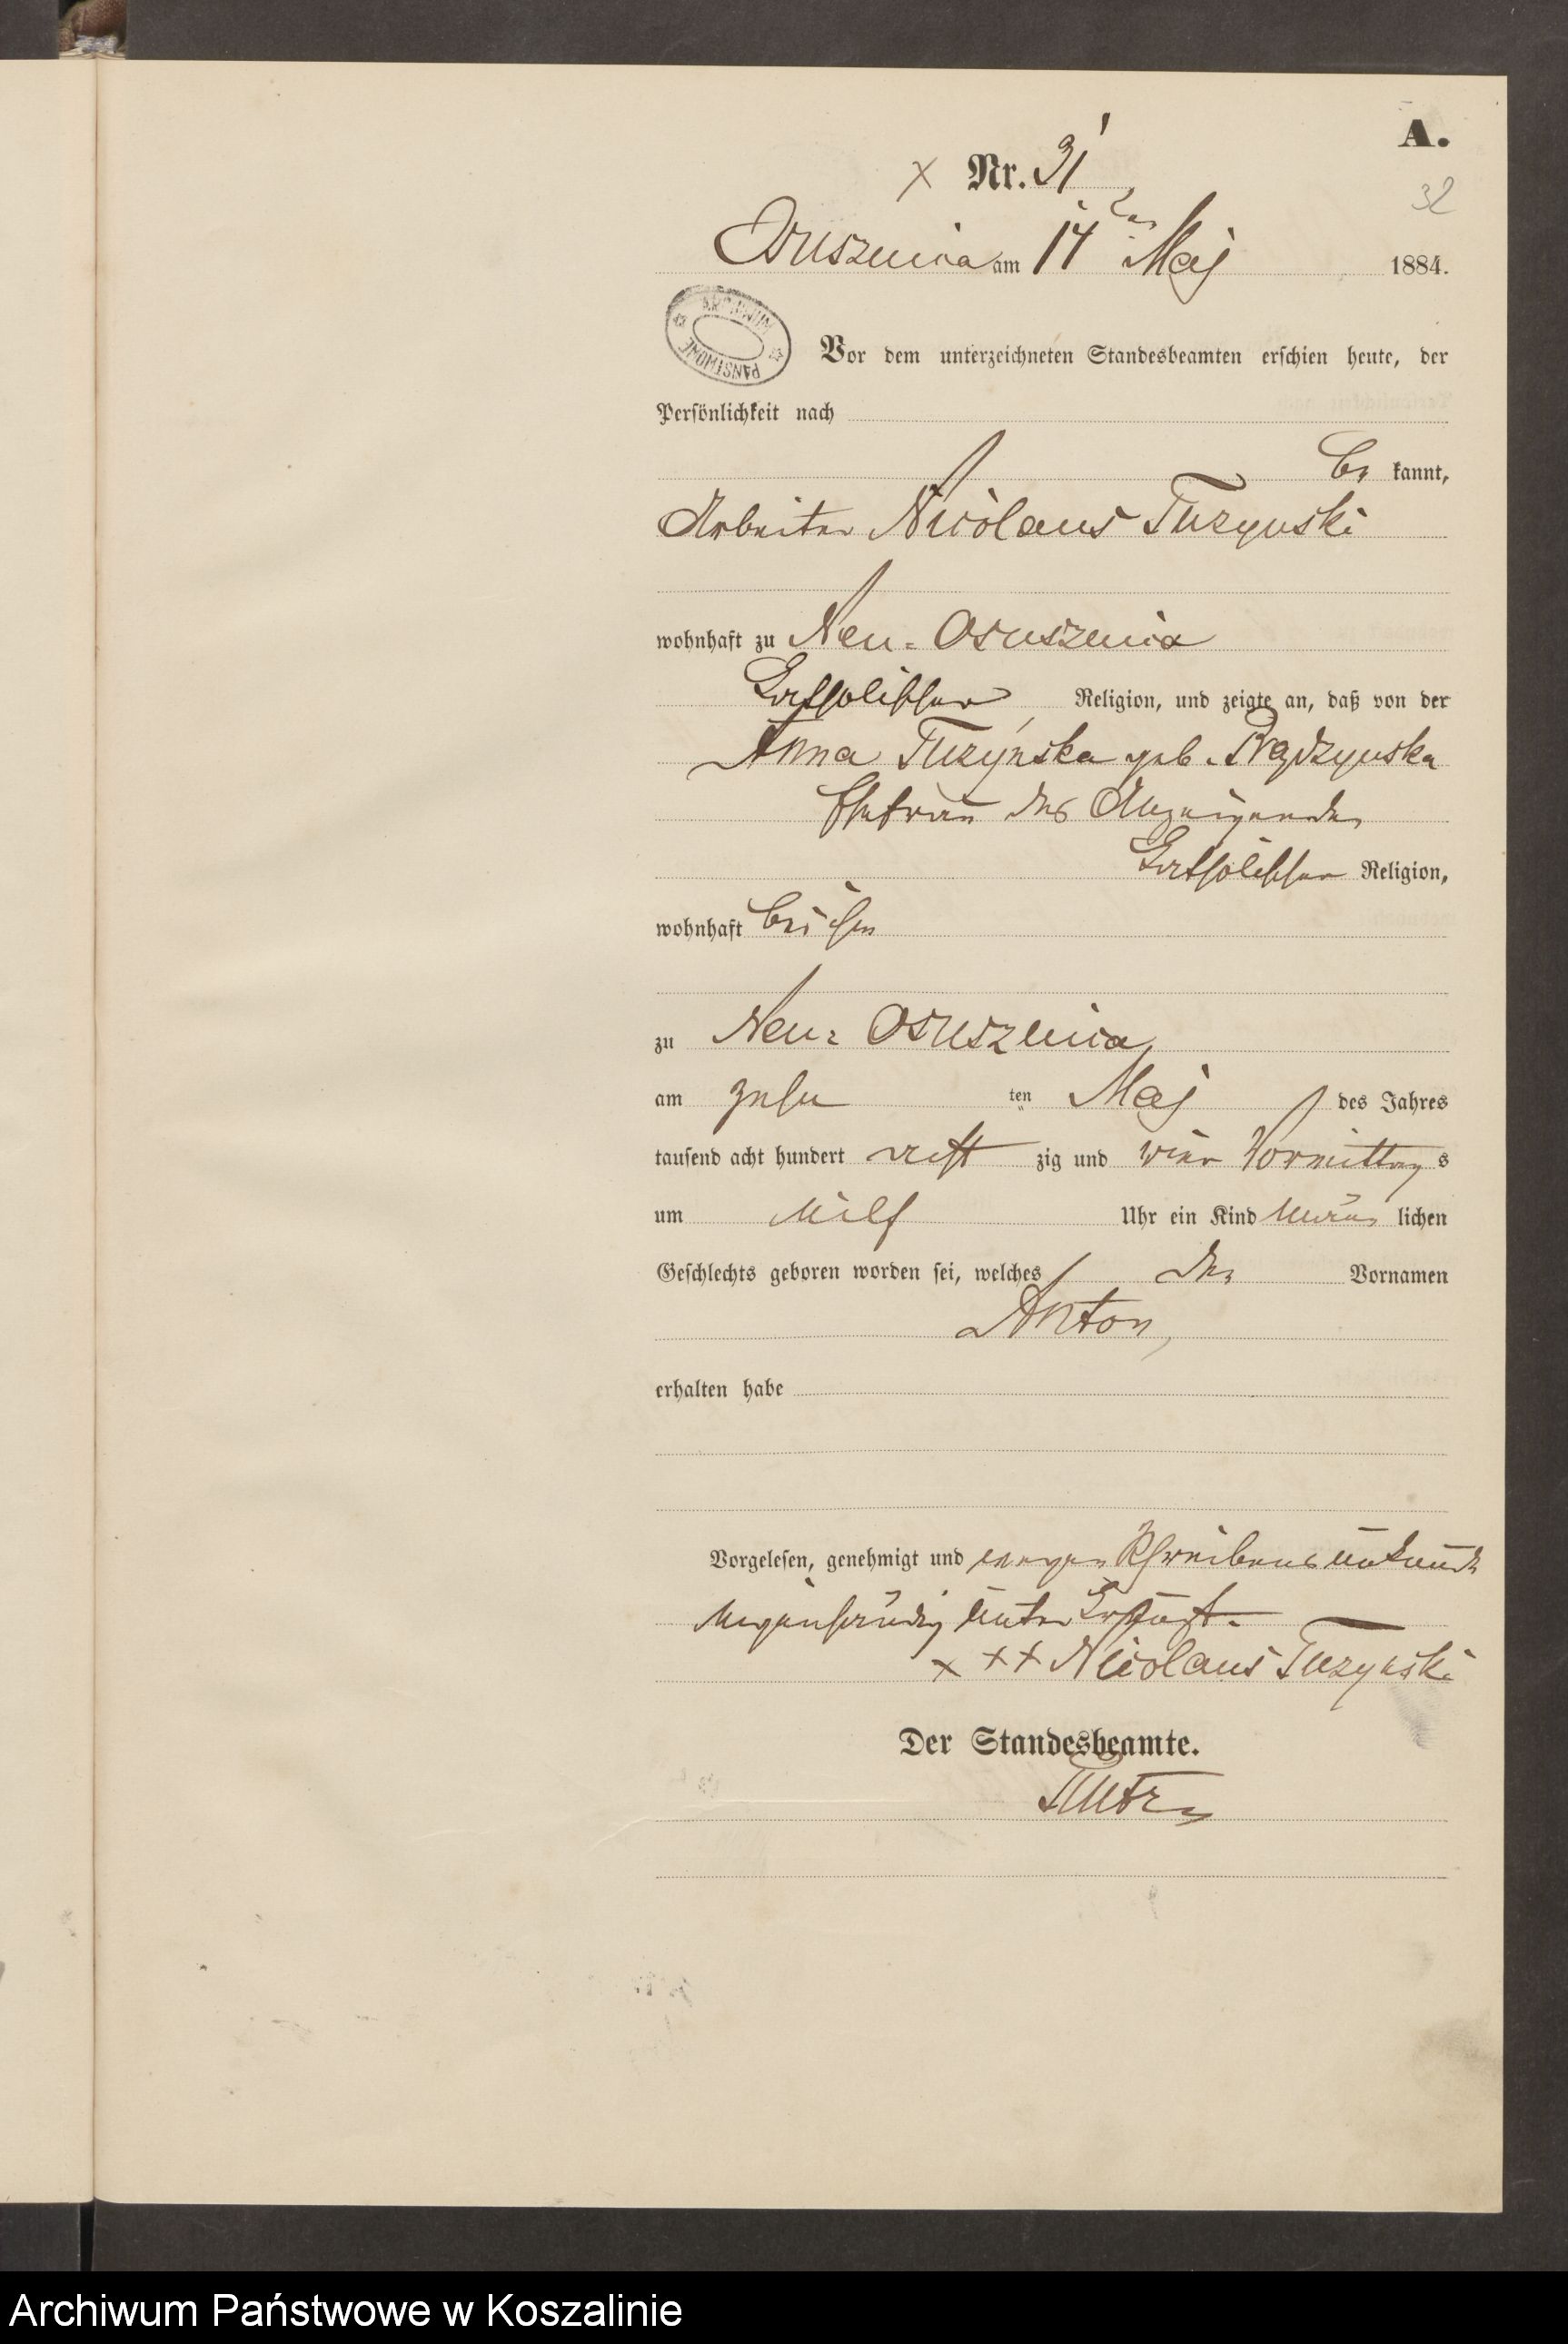 A.
Nr. 31
32
Osusznica am 14ten Maj 1884.
ARCHIWUM PAŃSTWOWE
Vor dem unterzeichneten Standesbeamten erschien heute, der
Persönlichkeit nach
be kannt,
Arbeiter Nicolaus Tuzynski
wohnhaft zu Neu-Osusznica
katholischer Religion, und zeigte an, daß von der
Anna Tuzynska geb.
Ehefrau des Anzeigenden
katholischer Religion,
wohnhaft bei ihm
zu Neu-Osusznica
am zehn ten Maj des Jahres
tausend acht hundert acht zig und vier Vormittag s
um Uhr ein Kind männ lichen
Geschlechts geboren worden sei, welches den Vornamen
Anton,
erhalten habe
Vorgelesen, genehmigt und wegen Schreibens unkunde
unter
x x x Nicolaus Tuzynski
Der Standesbeamte.
Archiwum Państwowe w Koszalinie